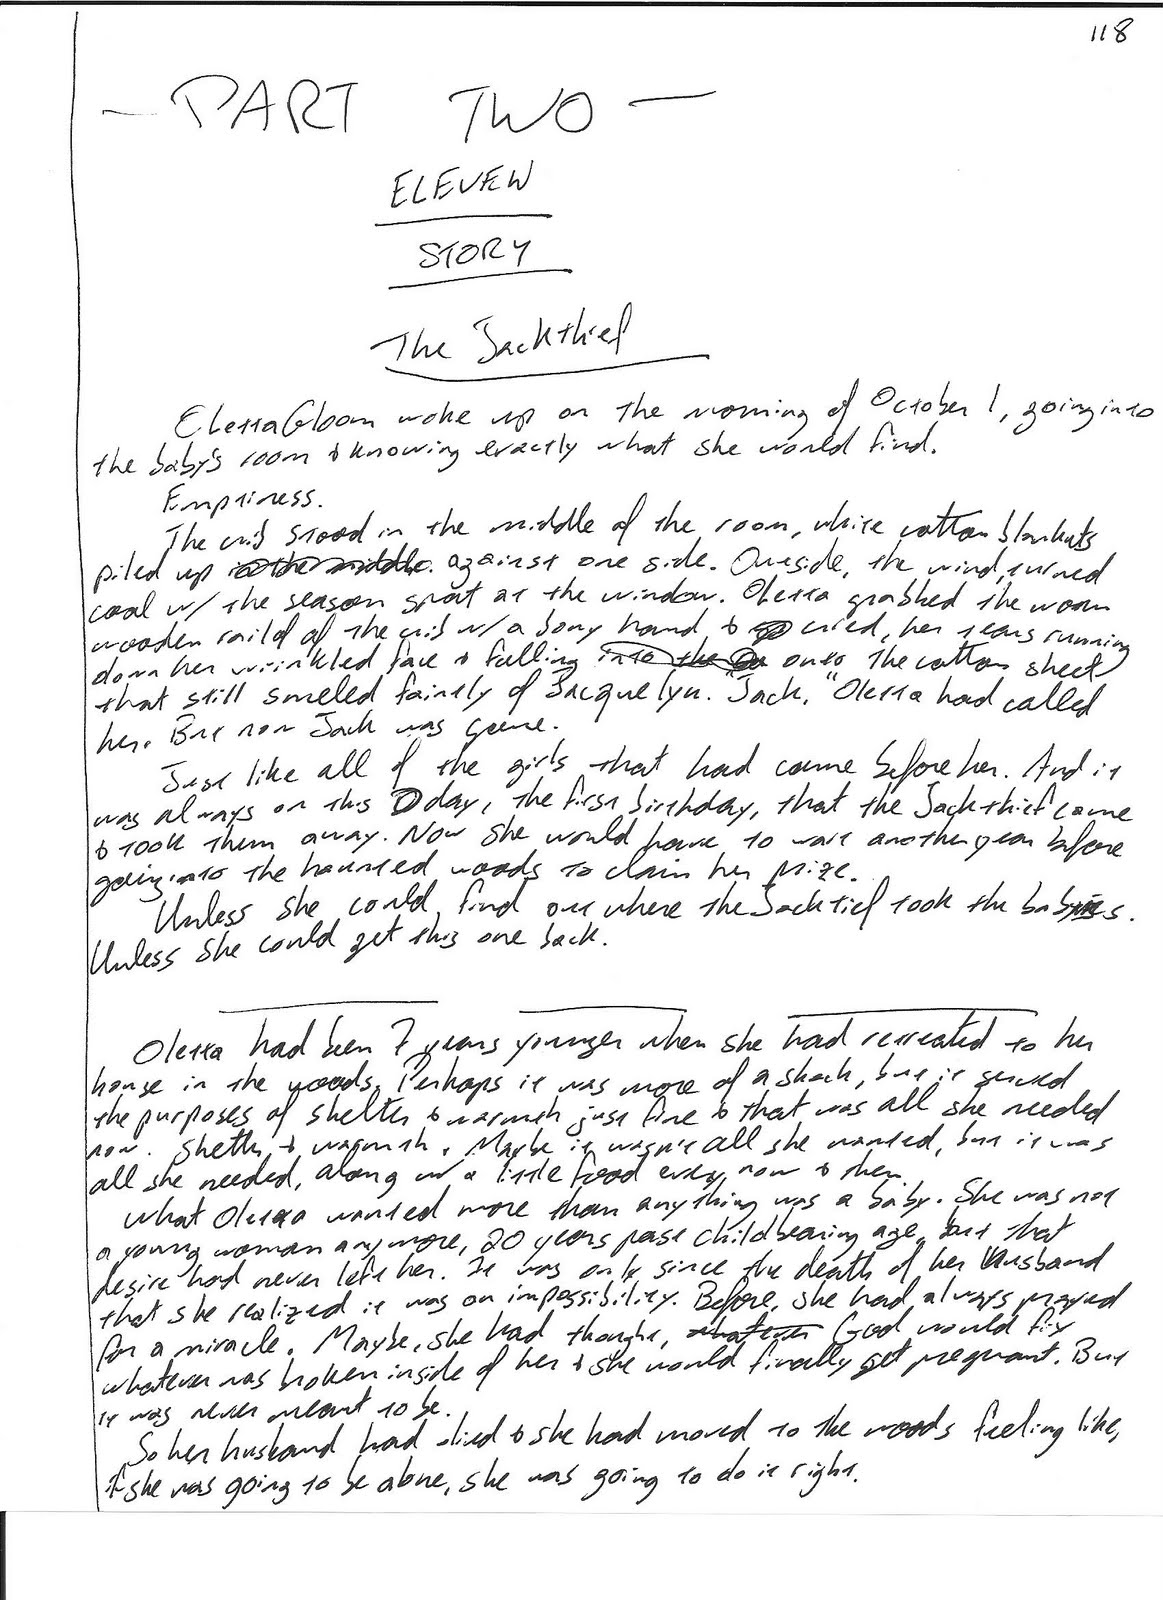 118
— PART TWO —
ELEVEN
STORY
The Jackthief
Oletta Gloom woke up on the morning of October 1, going into
the baby's room & knowing exactly what she would find.
Emptiness.
The crib stood in the middle of the room, white cotton blankets
piled up in the middle. against one side. Outside, the wind, turned
cool w/ the season spat at the window. Oletta grabbed the worn
wooden rail of the crib w/ a bony hand & cried, her tears running
down her wrinkled face & falling into the onto the cotton sheet
that still smelled faintly of Jacquelyn. "Jack," Oletta had called
her. But now Jack was gone.
Just like all of the girls that had came before her. And it
was always on this day, the first birthday, that the Jackthief came
& took them away. Now she would have to wait another year before
going into the haunted woods to claim her prize.
Unless she could find out where the Jacktief took the babies.
Unless she could get this one back.
Oletta had been 7 years younger when she had retreated to her
house in the woods. Perhaps it was more of a shack, but it served
the purposes of shelter & warmth just fine & that was all she needed
now. Shelter & warmth. Maybe it wasn't all she wanted, but it was
all she needed, along w/ a little food every now & then.
What Oletta wanted more than anything was a baby. She was not
a young woman anymore, 20 years past childbearing age, but that
desire had never left her. It was only since the death of her husband
that she realized it was an impossibility. Before, she had always prayed
for a miracle. Maybe, she had thought, whatever God would fix
whatever was broken inside of her & she would finally get pregnant. But
it was never meant to be.
So her husband had died & she had moved to the woods feeling like,
if she was going to be alone, she was going to do it right.